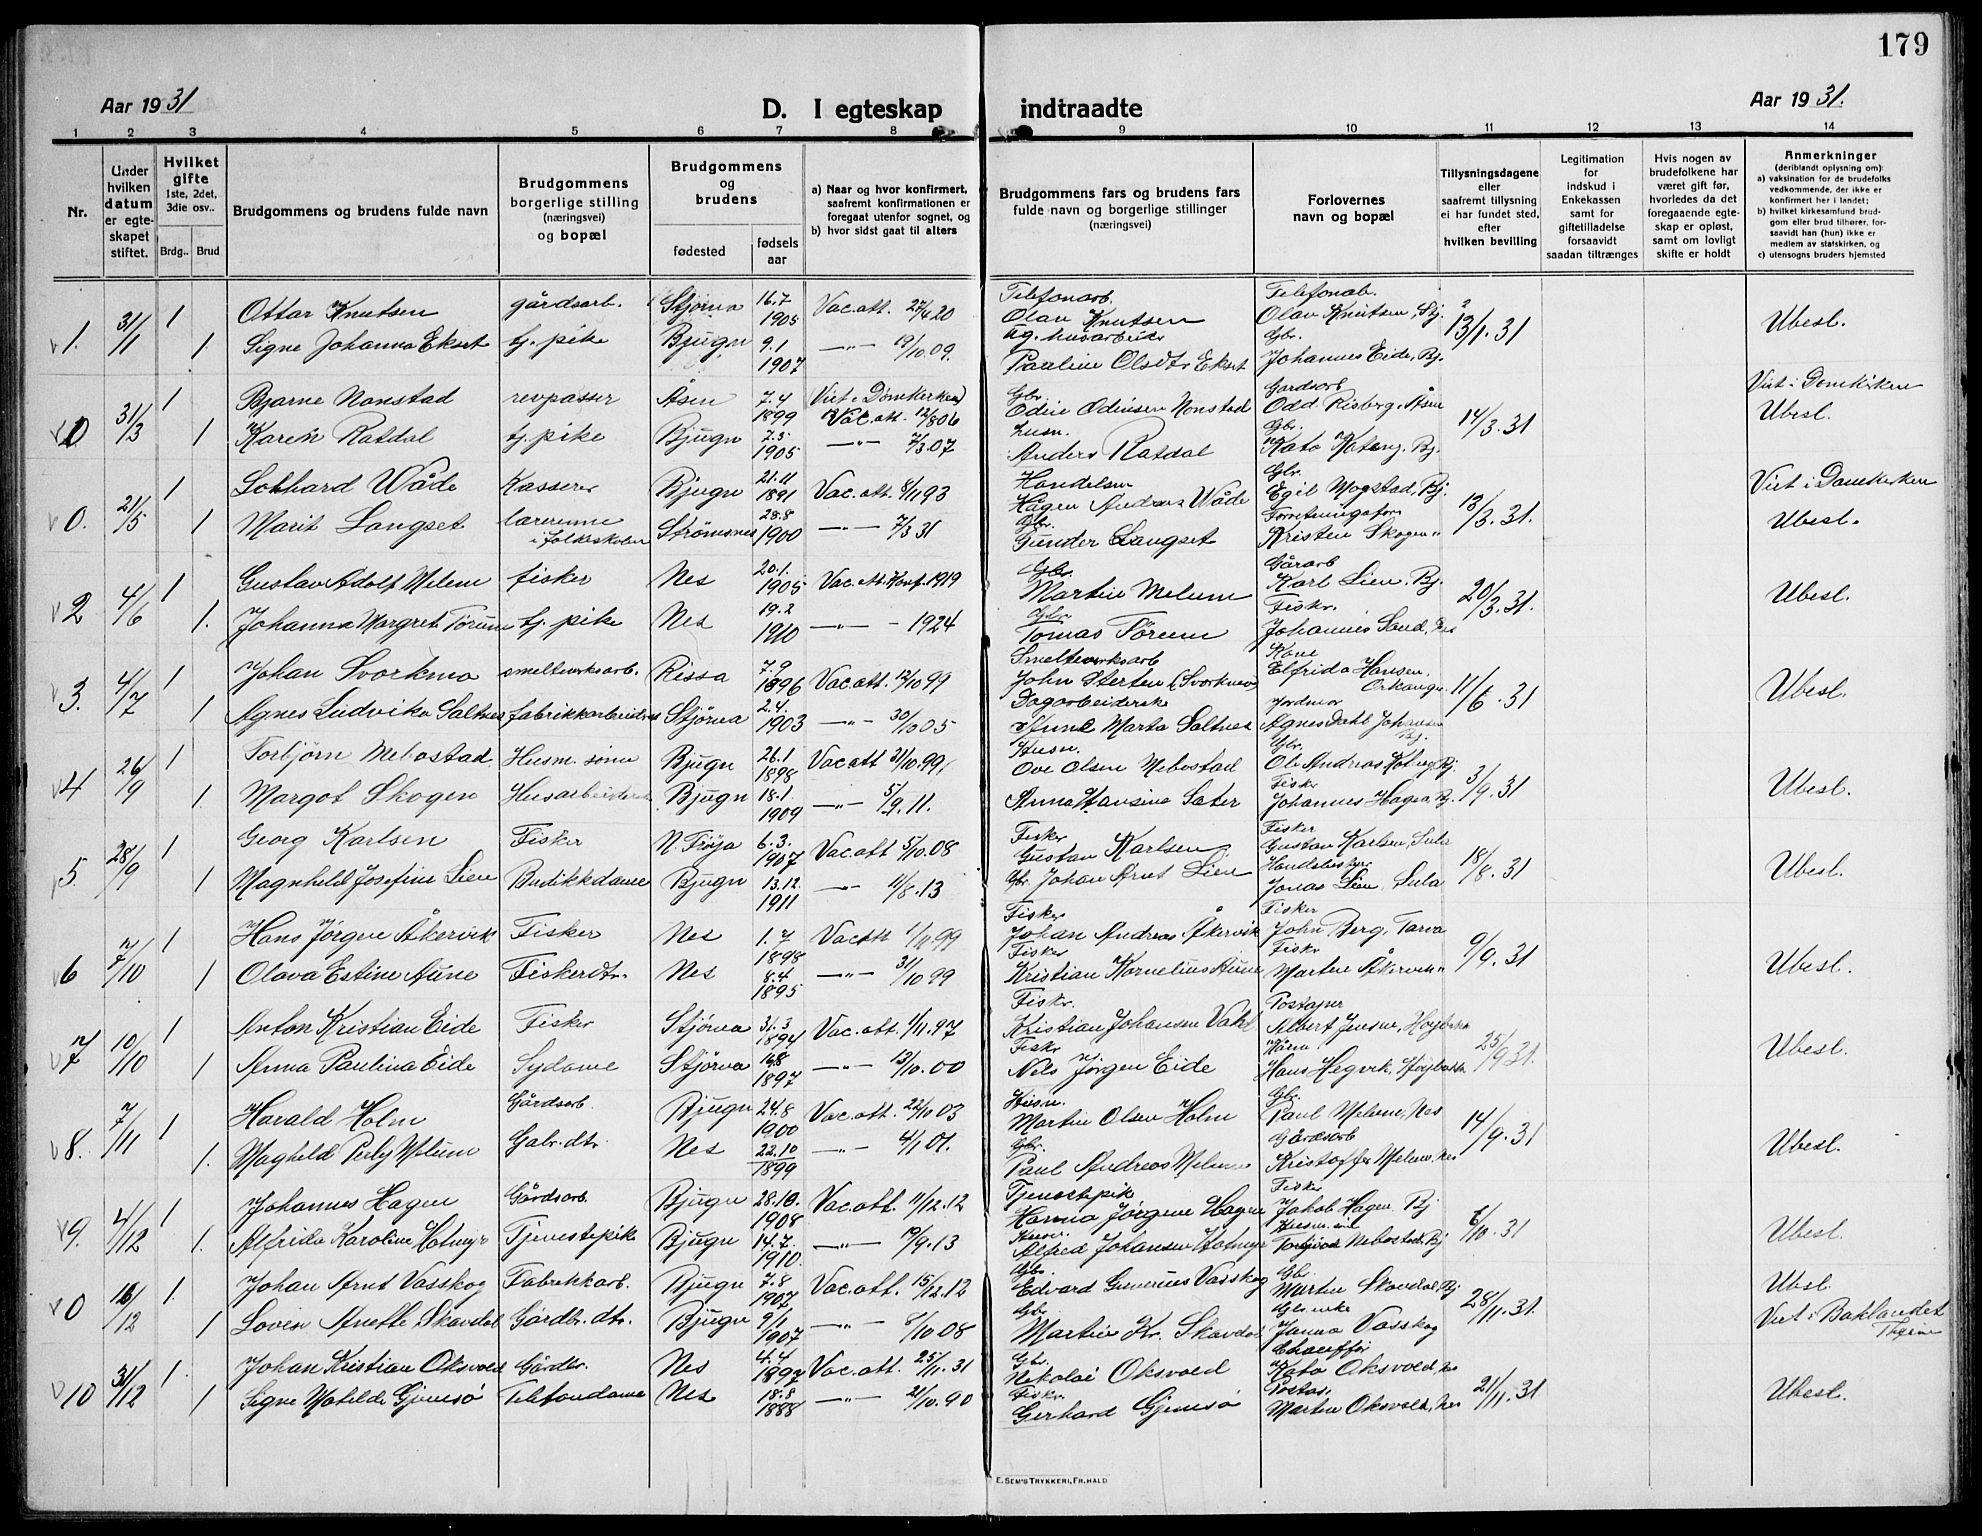 179
Aar 1931
D. I egteskap indtraadte
Aar 1931.
1 2 3 4 5 6 7 8 9 10 11 12 13 14
Nr.
Under hvilken datum er egteskapet stiftet.
Hvilket gifte 1ste, 2det, 3die osv..
Brdg.. Brud
Brudgommens og brudens fulde navn
Brudgommens borgerlige stilling (næringsvei) og bopæl
Brudgommens og brudens
fødested
fødsels aar
a) Naar og hvor konfirmert, saafremt konfirmationen er foregaat utenfor sognet, og
b) hvor sidst gaat til alters
Brudgommens fars og brudens fars fulde navn og borgerlige stillinger (næringsvei)
Forlovernes navn og bopæl
Tillysningsdagene eller saafremt tillysning ei har fundet sted, efter hvilken bevilling
Legitimation for indskud i Enkekassen samt for giftetilladelse forsaavidt saadan tiltrænges
Hvis nogen av brudefolkene har været gift før, hvorledes da det foregaaende egteskap er opløst, samt om lovligt skifte er holdt
Anmerkninger (deriblandt oplysning om):
a) vaksination for de brudefolks vedkommende, der ikke er konfirmert her i landet;
b) hvilket kirkesamfund brudgom eller brud tilhører, forsaavidt han (hun) ikke er medlem av statskirken, og
c) utensogns bruders hjemsted
1. 31/1 1 Ottar Knutsen gårdsarb. Stjørna 16.7 1905 Vac.att. 27/4 20 Telefonarb. Olav Knutsen Telefonab. Olav Knutsen, Stj. 13/1.31 Ubesl.
1. Signe Johanna Ekset tj. pike Bjugn 9.1 1907 —"— 19/10.09. Pauline Olsdtr Ekset Gbr. Johannes Eide, Bj.
0 31/3 1 Bjarne Nonstad revpasser Åsen 7.4 1899 Viet i Domkirken Vac.att. 12/8 06 Gbr. Odin Odinsen Nonstad Gardsarb Odd Risberg, Åsen 14/3.31 Viet i Domkirken Ubesl.
1 Karen Ratdal tj. pike Bjugn 7.5 1905 —"— 7/3.07 Husn. Anders Ratdal Gbr. Kato Koteng, Bj.
0. 21/5 1 Lokhard Wåde Kasserer Bjugn 21.11 1891 Vac.att. 8/11 93 Handelsm Hagen Andreas Wåde Gbr. Egil Mogstad, Bj. 13/3.31. Viet i Domkirken
1 Marit Langset lærerinne i folkeskolen Strømsnes 28.8 1900 —"— 7/3 31 Gbr. Gunder Langset Forretningsfør Kristen Skogen " Ubesl.
2 4/6 1 Gustav Adolf Melum fisker Nes 20.1. 1905 Vac. att. Konf. 1919 Gbr. Martin Melum Gårarb Karl Lien, Bj. 20/3.31. Ubesl.
1. Johanna Margret Tørum tj. pike Nes 19.2 1910 —"— - 1924 Gbr. Tomas Tørum Fiskr. Johannes Sand, Nes
3. 4/7 1 Johan Svorkmo smelteverksarb. Rissa 7.9 1896 Vac.att. 12/10 99 Smelteverksarb John Sterten (Svorkmo) Kone Elfrida Hansen, Orkanger 11/6.31 Ubesl.
1. Agnes Ludvika Saltnes fabrikkarbeiderske Stjørna 2.4. 1903 —"— 30/10 05 Dagarbeiderske Anne Marta Saltnes Jordmor Agnes Dahl Johansen Bj.
4 26/9 1 Torbjørn Mebostad Husm. sønn Bjugn 26.1 1898 Vac att 31/10.99 Husm. Ove Olsen Mebostad Gbr. Ole Andreas Koteng Bj. 3/9.31 Ubesl.
1. Margot Skogen Husarbeiderske Bjugn 18.1. 1909 —"— 5/9.11. Anna Hansine Sæter Fiskr Johannes Hagen, Bj.
5. 28/9 1 Georg Karlsen Fisker N. Frøja 6.3. 1907 Vac.att 5/10.08 Fisker Gustav Karlsen Fisker Gustav Karlsen, Sula 18/8.31 Ubesl.
1 Magnhild Josefine Lien Butikkdame Bjugn 13.12. 1911 —"— 11/8.13 Gbr. Johan Arnt Lien Handelsbest. Jonas Lien, Sula
6 7/10 1 Hans Jørgen Åkervik Fisker Nes 1.7 1898 Vac att 1/11.99 Fisker Johan Andreas Åkervik Fisker John Berg, Tarva 9/9.31 Ubesl.
1 Olava Estine Aune Fiskerdtr. Nes 8.4 1895 —"— 31/10 99 Fisker Kristian Kornelius Aune Fiskr Martin Åkervik "
7 10/10 1 Anton Kristian Eide Fisker Stjørna 31.3 1894 Vac.att. 1/11.97 Fiskr. Kristian Johansen Vakl Postaper Albert Jensen, Høybakken 25/9 31. Ubesl.
1 Anna Paulina Eide Sydame Stjørna 16.8 1897 —"— 13/10.00 Fiskr Nils Jørgen Eide Hans Hegvik, Høybakken
8. 7/11 1 Harald Holm Gårdsarb. Bjugn 24.8 1900 Vac.att. 22/10 03 Husm. Martin Olsen Holm Gbr. Paul Melum, Nes 14/9.31 Ubesl.
1. Maghild Perly Melum Gabr. dtr. Nes 22.10 1899 —"— 4/1 01. Gbr. Paul Andreas Melum Gårdsarb Kristoffer Melum, Nes
9. 4/12 1 Johannes Hagen Gårdsarb. Bjugn 28.10. 1908 Vac.att. 11/12.12 Tjenestepik Hanna Jørgine Hagen Fisker Jakob Hagen, Bj 6/10.31 Ubesl.
1. Alfrida Karoline Hotmyr Tjenestepik Bjugn 14.7. 1910. —"— 19/9.13 Alfred Johansen Hotmyr Torbjørn Mebostad, Bj
0 16/12 1. Johan Arnt Vasskog Fabrikkarb. Bjugn 7.8 1907 Vac.att. 15/12.12 Gbr. Edvard Gunerius Vasskog Gbr. Martin Skavdal Bj 28/11.31. Ubesl.
1 Lovise Anette Skavdal Gårdbr. dtr. Bjugn 9/1 1907 —"— 8/10 08 Gbr Martin Kr. Skavdal Gbr enke Janna Vasskog Viet i Baklandet
10 31/12 1. Johan Kristian Oksvold Gårdbr. Nes 4.4 1897 Vac.att. 25/11.31 Gbr. Nikolai Oksvold Chauffør Kato Oksvold, Nes 21/11.31 Ubesl.
1 Signe Matilde Gjemsø Telefondame Nes 18.8 1888 —"— 21/10.90 Fiskr. Gerhard Gjemsø Postas. Martin Oksvold, Nes
E. SEM'S TRYKKERI, FR. HALD